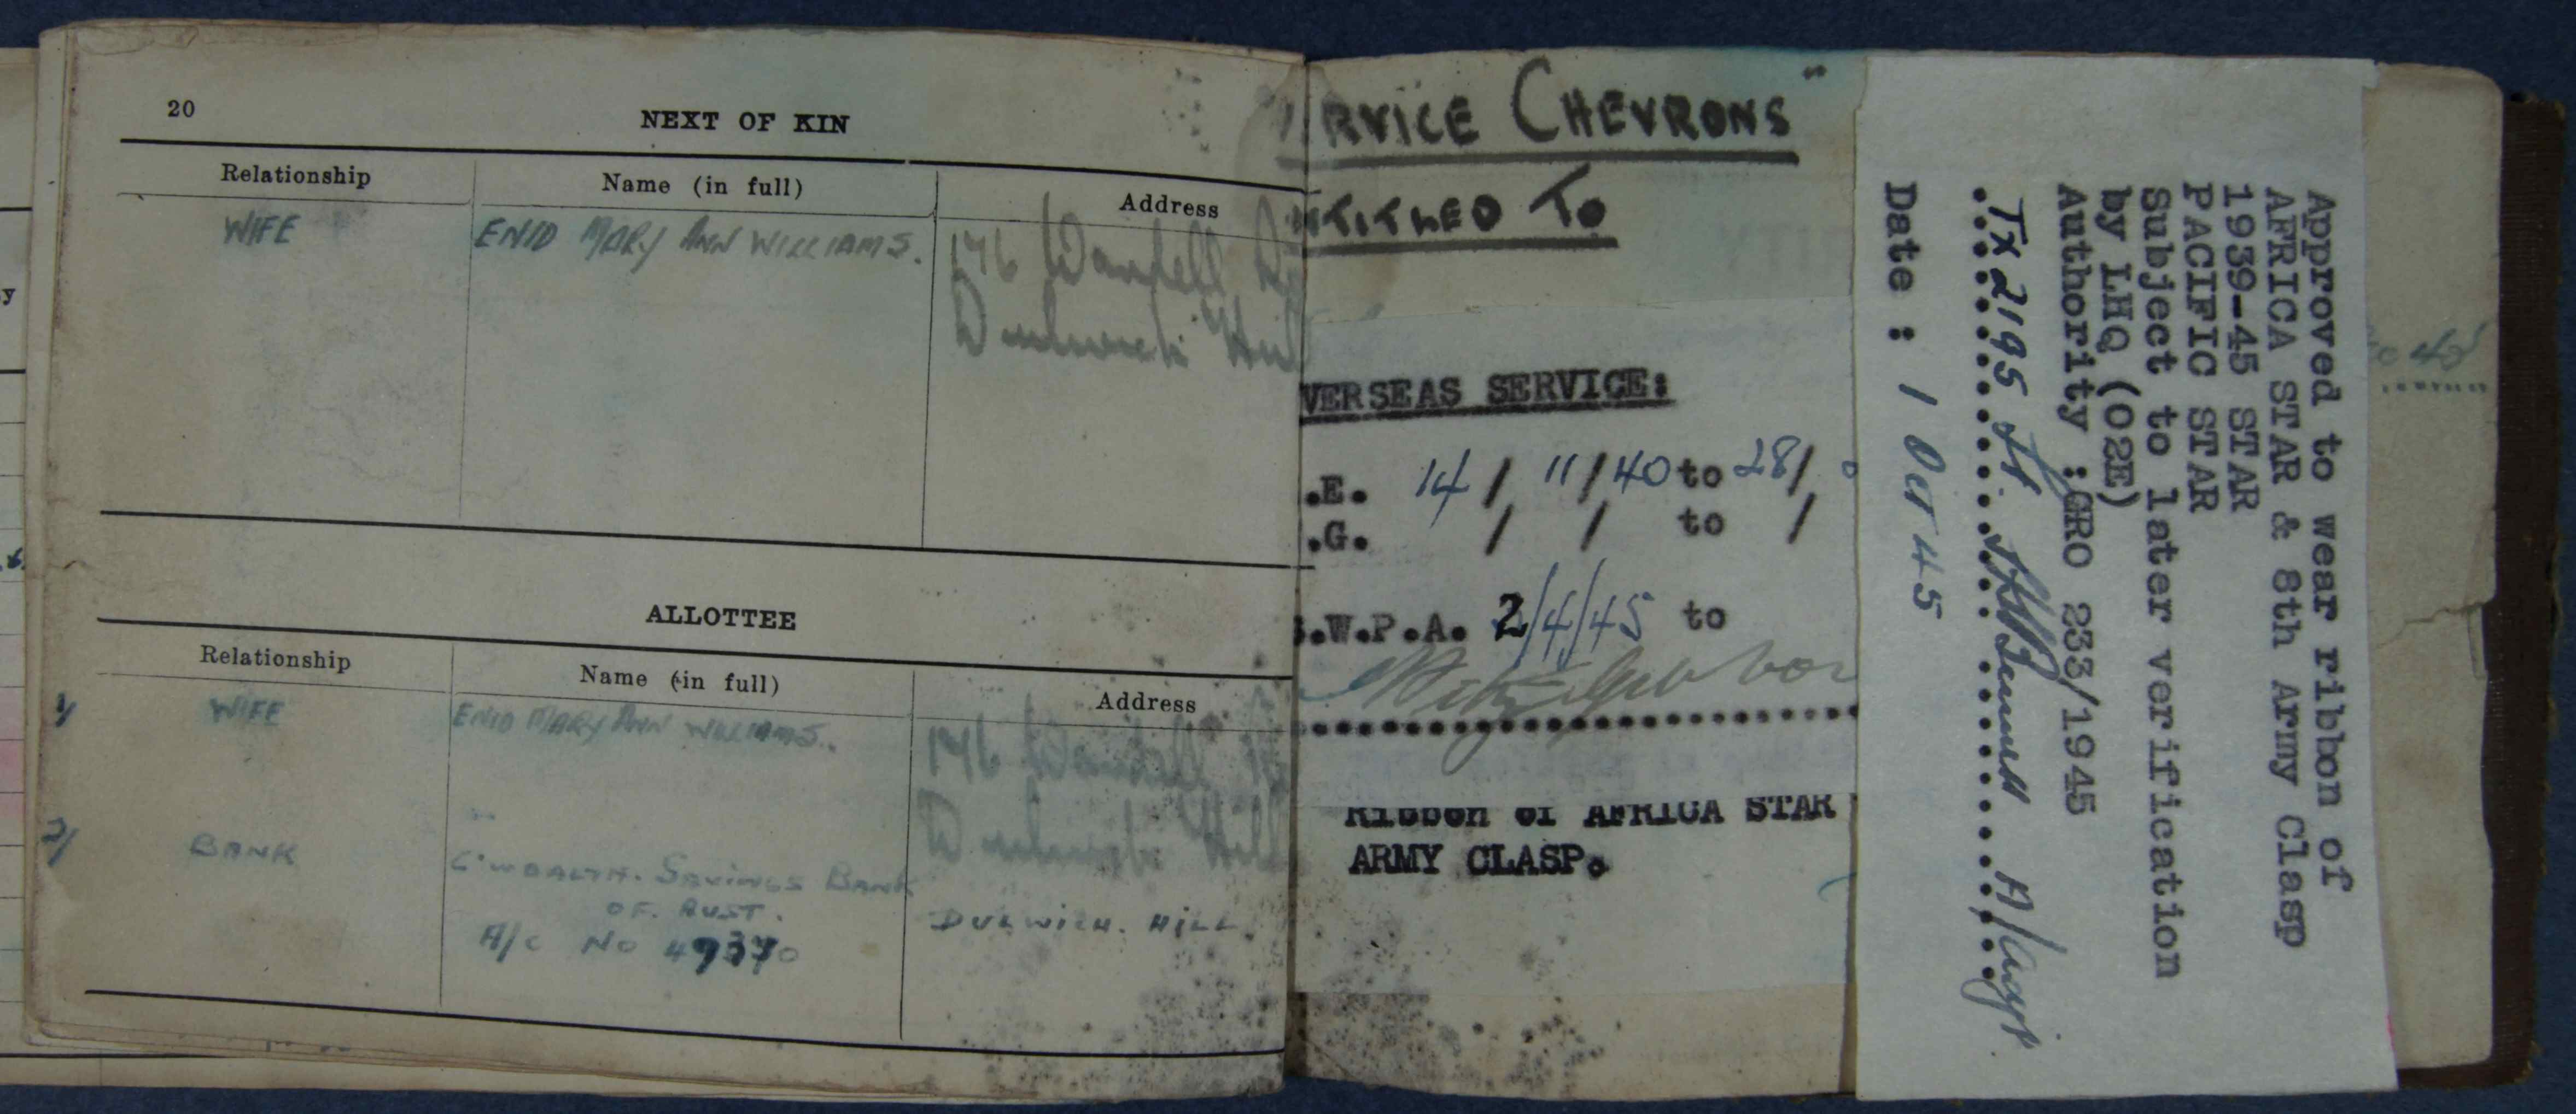 20
NEXT OF KIN
Relationship
Name (in full)
Address
WIFE
ENID MARY ANN WILLIAMS.
176
Dulwich Hill
ALLOTTEE
Relationship
Name (in full)
Address
1/
WIFE
ENID MARY ANN WILLIAMS.
176
Dulwich Hill
2/
BANK
C'WEALTH. SAVINGS BANK
OF. AUST.
A/C No 49370
DULWICH. HILL.
RVICE CHEVRONS"
NTITLED TO
VERSEAS SERVICE:
.E. 14/ 11/40 to 28/
.G. / / to /
.W.P.A. 2/4/45 to
Ribbon of AFRICA STAR
ARMY CLASP.
Approved to wear ribbon of
AFRICA STAR & 8th Army Clasp
1939-45 STAR
PACIFIC STAR
Subject to later verification
by LHQ (O2E)
Authority : GRO 233/1945
TX2195
Date : 1 Oct 45